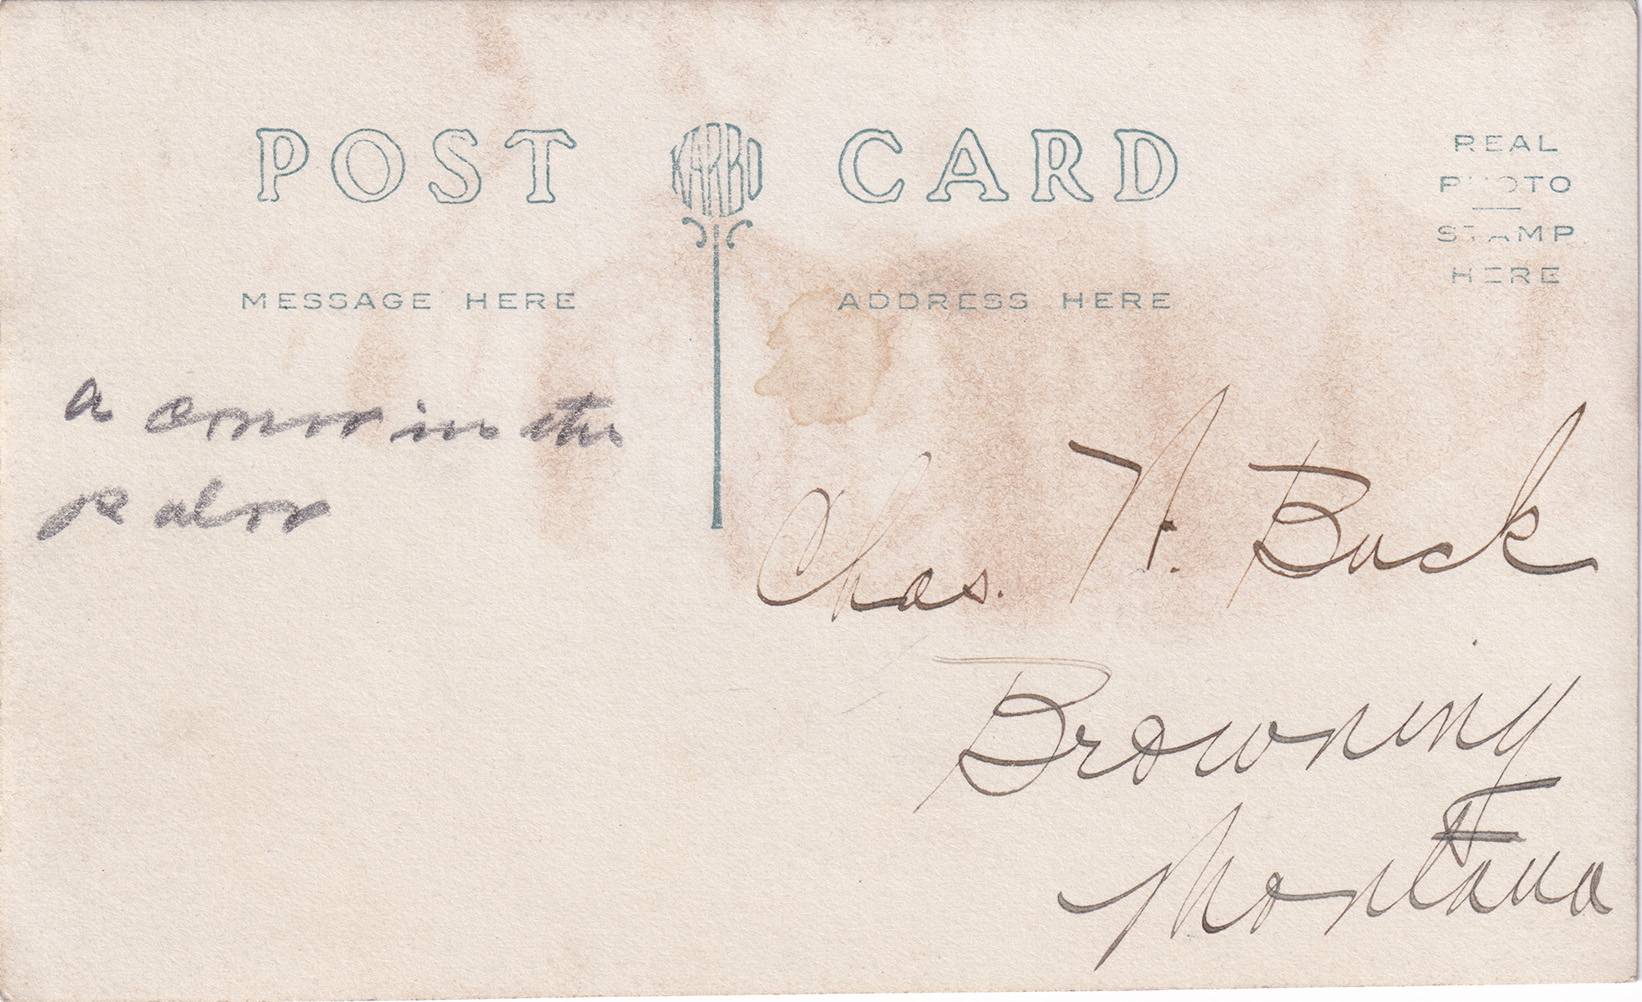 POST KARBO CARD
REAL
PHOTO
STAMP
HERE
MESSAGE HERE
ADDRESS HERE
a cornor in the
Chas. N. Buck
Browning
Montana